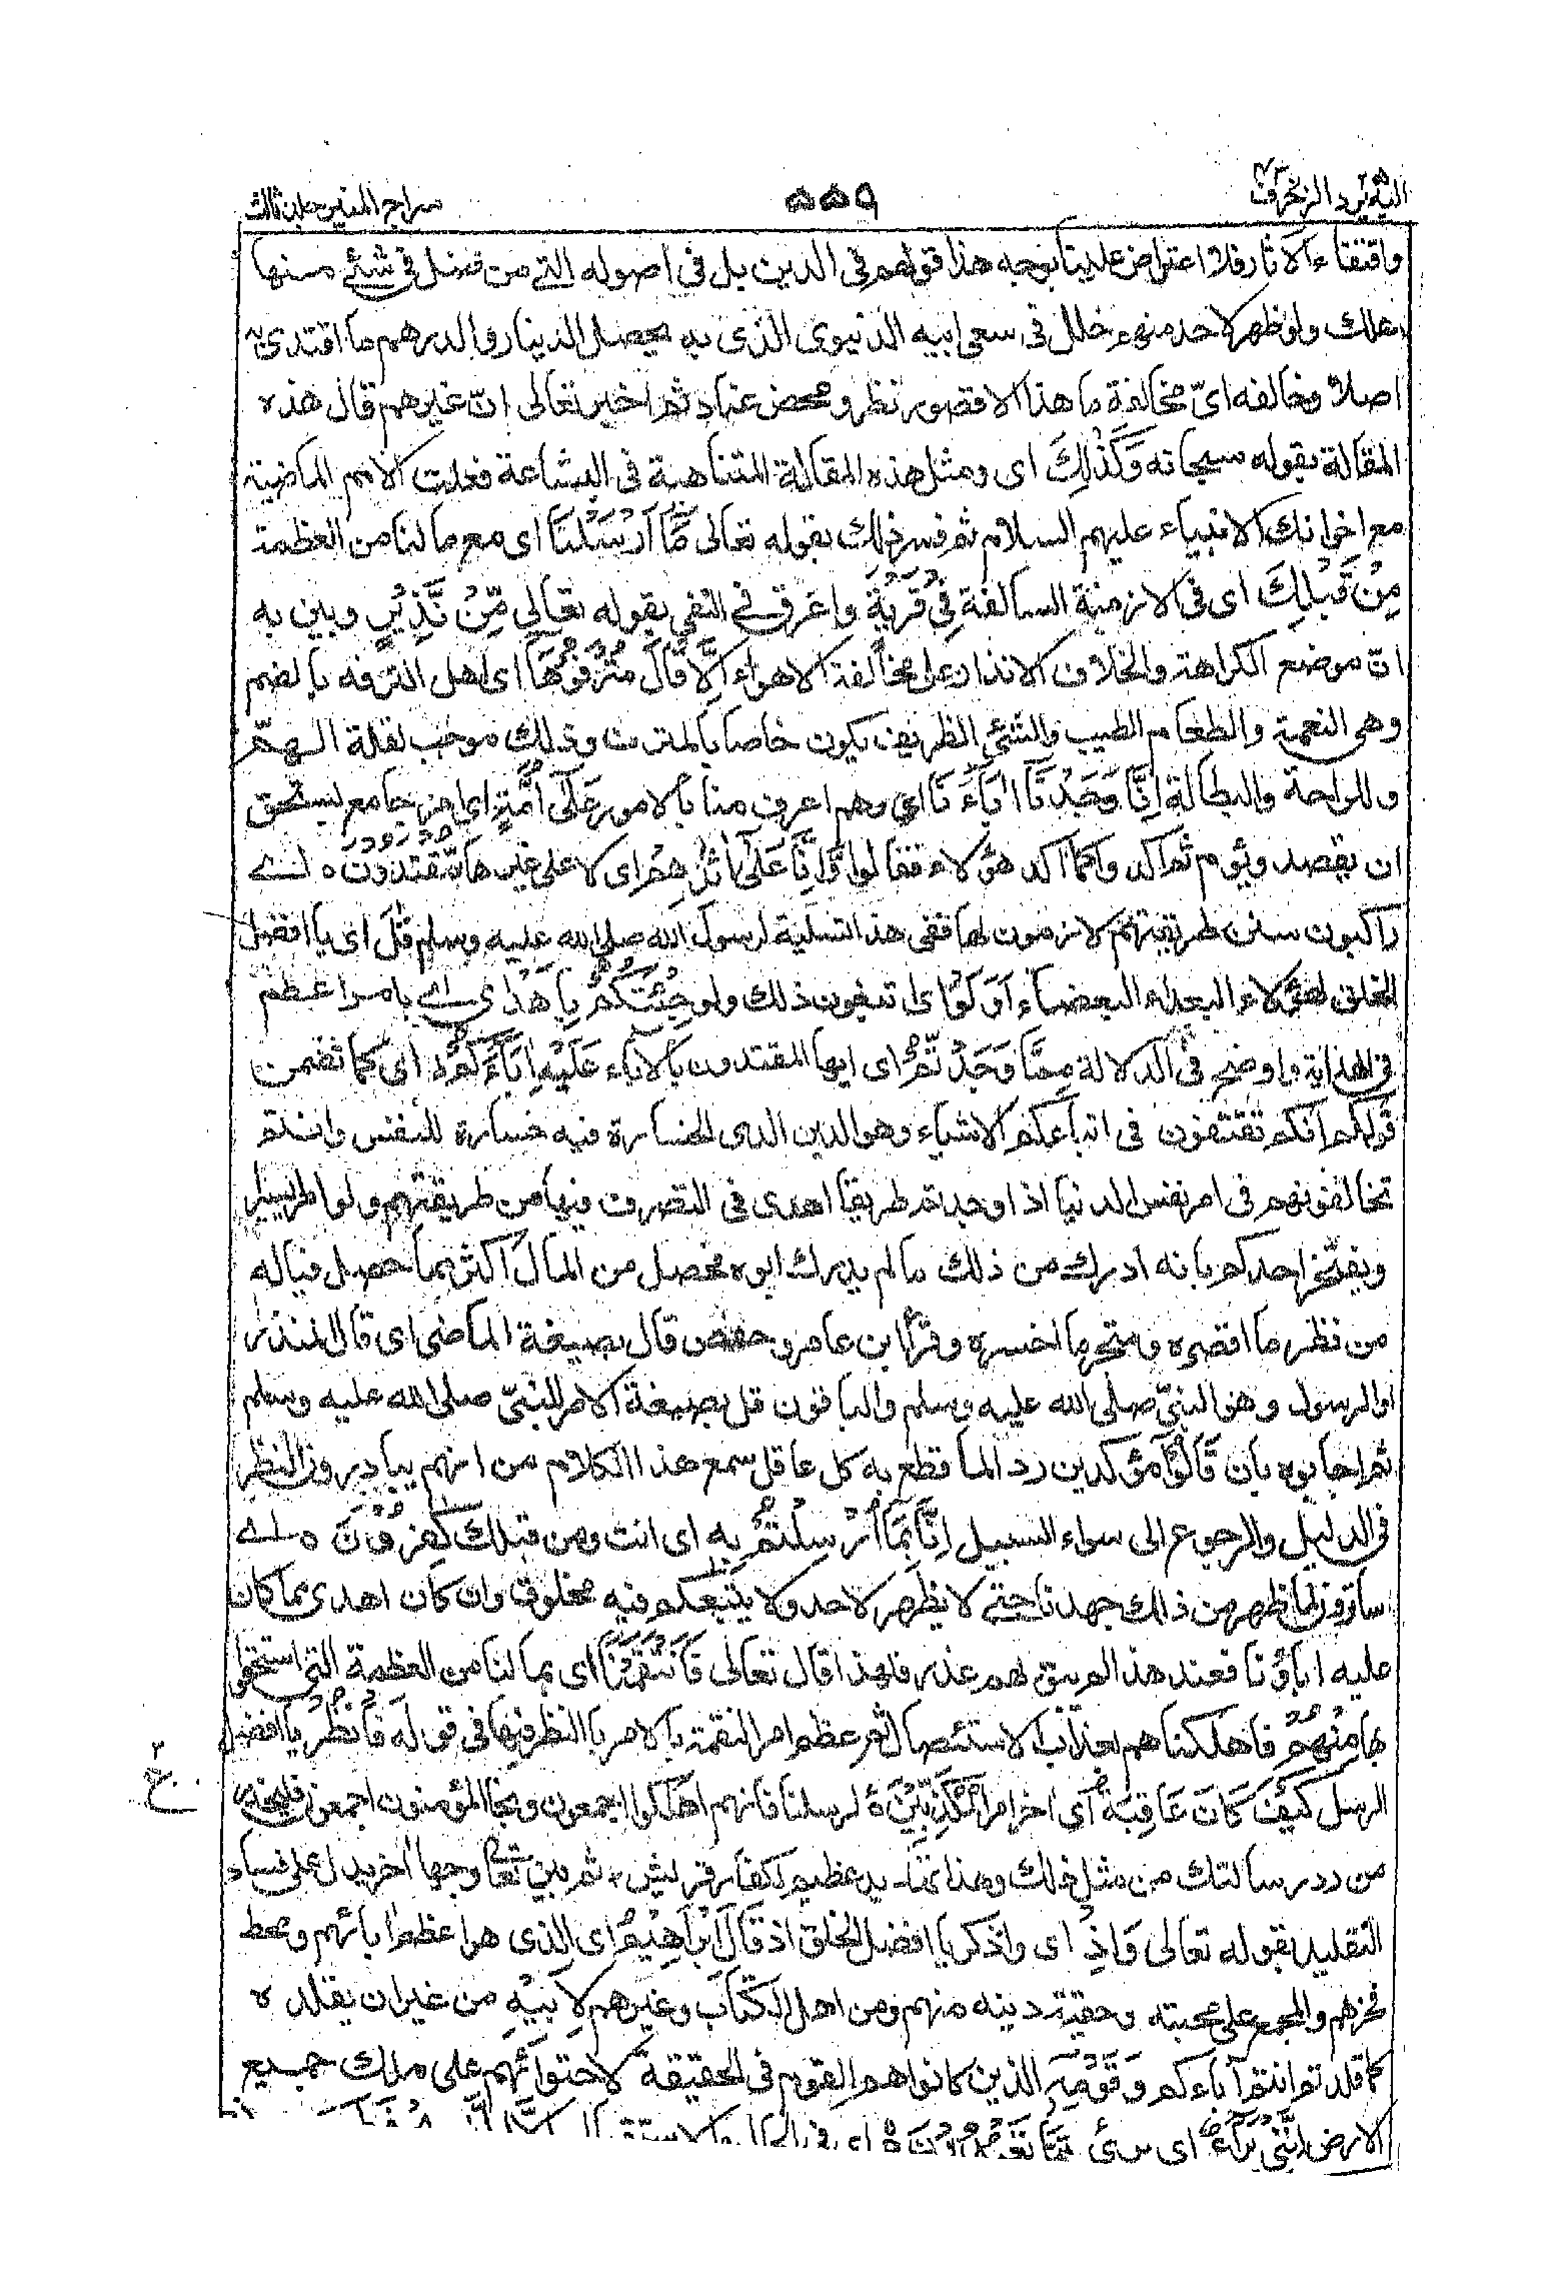 اليه يرد الزخرف ٤٣ ٥٥٩ سراج المنير جلد ثالث
واقتفاء الاثار فلا اعتراض علينا بوجه هذا قولهم فى الدين بل فى اصوله التے من ضل فى شئے منها
هلك ولو ظهر لاحد منهم خلل فى سعى ابيه الدنيوى الذى به يحصل الدينار والدرهم ما اقتدى به
اصلا وخالفه اىّ مخالفة ما هذا الا قصور نظر ومحض عناد ثم اخبر تعالى انّ غيرهم قال هذه
المقالة بقوله سبحانه وَكَذٰلِكَ اى ومثل هذه المقالة المتناهية فى البشاعة فعلت الامم الماضية
مع اخوانك الانبياء عليهم السلام ثم فسر ذلك بقوله تعالى مَّآ اَرْسَلْنَا اى مع ما لنا من العظمة
مِنْ قَبْلِكَ اى فى الازمنة السالفة فِىْ قَرْيَةٍ واغرق فے النفى بقوله تعالى مِّنْ نَّذِيْرٍ وبين به
انّ موضع الكراهة والخلاف الانذار على مخالفة الاهواء اِلَّا قَالَ مُتْرَفُوْهَآ اى اهل الترفه بالضم
وهى النعمة والطعام الطيب والشئ الظريف يكون خاصا بالمترف وذلك موجب لقلة الهمّ
وللراحة والبطالة اِنَّا وَجَدْنَآ اٰبَآءَنَا اى وهم اعرف منا بالامور عَلٰٓى اُمَّةٍ اى امر جامع يستحق
ان يقصد ويؤم ثم اكد وا كما اكد هؤلاء فقالوا وَّاِنَّا عَلٰٓى اٰثٰرِهِمْ اى لا على غيرها مُّقْتَدُوْنَ ه اے
راكبون سنن طريقتهم لازمون لها ففى هذا تسلية لرسول الله صلى الله عليه وسلم قٰلَ اى يا افضل
الخلق لهؤلاء البعداء البغضاء اَوَلَوْ اى تتبعون ذلك ولو جِئْتُكُمْ بِاَهْدٰى اے بامر اعظم
فى الهداية واوضح فى الدلالة مِمَّا وَجَدْتُّمْ اى ايها المقتدون بالاباء عَلَيْهِ اٰبَآءَكُمْ اى كما تضمن
قولكم انكم تقتفون فى اتباعكم الاشياء وهو الدين الذى الخسارة فيه خسارة للنفس وانتم
تخالفونهم فى امر نفس الدنيا اذا وجدتم طريقا اهدى فى التصرف فيها من طريقتهم ولو امر يسير
ويفتخر احدكم بانه ادرك من ذلك ما لم يدرك ابوه فحصل من المال اكثر مما حصل فياله
من نظر ما اقصره ومتجر ما اخسره وقرأ ابن عامر وحفص قال بصيغة الماضى اى قال المنذر
او الرسول وهو النبىّ صلى الله عليه وسلم والباقون قل بصيغة الامر للنبىّ صلى الله عليه وسلم
ثم اجابوه بان قَالُوْٓا مؤكدين رد الما قطع به كل عاقل سمع هذا الكلام من انهم يبادرون النظر
فى الدليل والرجوع الى سواء السبيل اِنَّا بِمَآ اُرْسِلْتُمْ بِهٖ اى انت ومن قبلك كٰفِرُوْنَ ه اے
ساترون لما ظهر من ذلك جهدنا حتے لا يظهر لاحد ولا يتبعكم فيه مخلوق وان كان اهدى مما كان
عليه اباؤنا فعند هذا لم يبق لهم عذر فلهذا قال تعالى فَانْتَقَمْنَا اى بما لنا من العظمة التى استحقوا
بها مِنْهُمْ فاهلكناهم بعذاب الاستئصال ثم عظم امر النقمة بالامر بالنظر فيها فى قوله فَانْظُرْ يا افضل
الرسل كَيْفَ كَانَ عَاقِبَةُ اى اخر امر الْمُكَذِّبِيْنَ ه لرسلنا فانهم اهلكوا اجمعون ونجا المؤمنون اجمعون فليحذر
من رد رسالتك من مثل ذلك وهذا تهديد عظيم لكفار قريش ه ثم بين تعالى وجها اخر يدل على فساد
التقليد بقوله تعالى وَاِذْ اى واذكر يا افضل الخلق اذ قَالَ اِبْرَاهِيْمُ اى الذى هو اعظم ابائهم ومحط
فخرهم والمجمع على محبته وحقية دينه منهم ومن اهل الكتاب وغيرهم لِاَبِيْهِ من غير ان يقلده
كما قلدتم انتم آباءكم وَقَوْمِهٖٓ الذين كانوا هم القوم فى الحقيقة لاحتوائهم على ملك جميع
الارض اِنَّنِىْ بَرَآءٌ اى برئ مِّمَّا تَعْبُدُوْنَ ه
ع